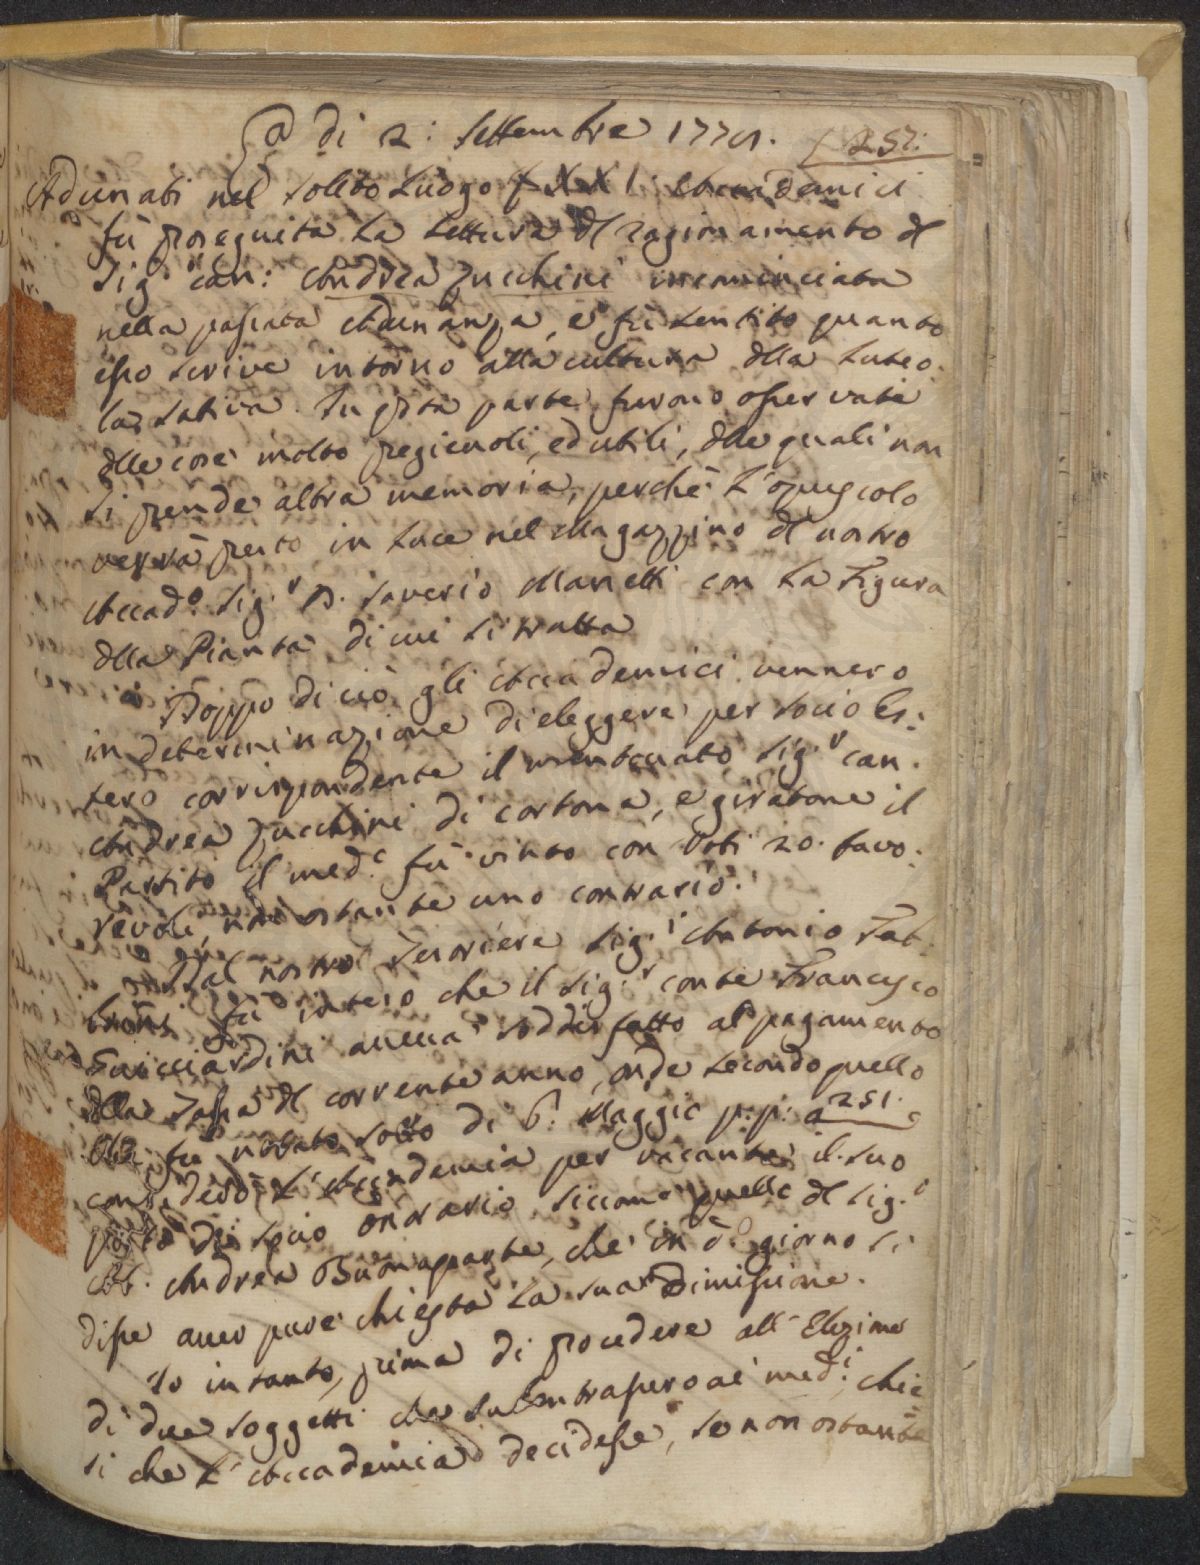 A dì 2: Settembre 1771. 257:
Adunati nel solito Luogo XXI: Accademici
fù proseguita la Lettura dl ragionamento dl
Sig.r Can: Andrea Zucchini incominciata
nella passata Adunanza, e fù sentito quanto
esso scrive intorno alla cultura dlla Luteo-
la sativa. In qsta parte furono osservate
dlle cose molto pregievoli, ed utili, dlle quali non
si prende altra memoria, perchè l'opuscolo
verrà posto in luce nel Magazzino dl nostro
Accad.o Sig.r D. Saverio Manetti con la Figura
dlla Pianta di cui si tratta
Doppo di ciò gli Accademici vennero
in determinazione di eleggere per socio Es:
tero corrispondente il mentovato Sig.r Can.
Andrea Zucchini di Cortona, e giratone il
Partito il med.o fù vinto con Voti 20. favo:
revoli, non ostante uno contrario.
Dal nostro Tesoriere Sig.r Antonio Fab:
fù inteso che il Sig.r Conte Francesco
Guicciardini aveva soddisfatto al pagamento
dlla Tassa dl corrente anno, onde secondo quello
che fù notato sotto dì 6. Maggio p:p: a 251.
considerò l'Accademia per vacante il suo
posto di socio onorario, siccome quello dl Sig.r
Ab. Andrea Buonaparte, che in o.e giorno si
disse aver pure chiesta la sua Dimissione.
Io intanto, prima di procedere all'Elezione
di due soggetti che subentrassero ai med.i, chie
si che l'Accademia decidesse, se non ostante